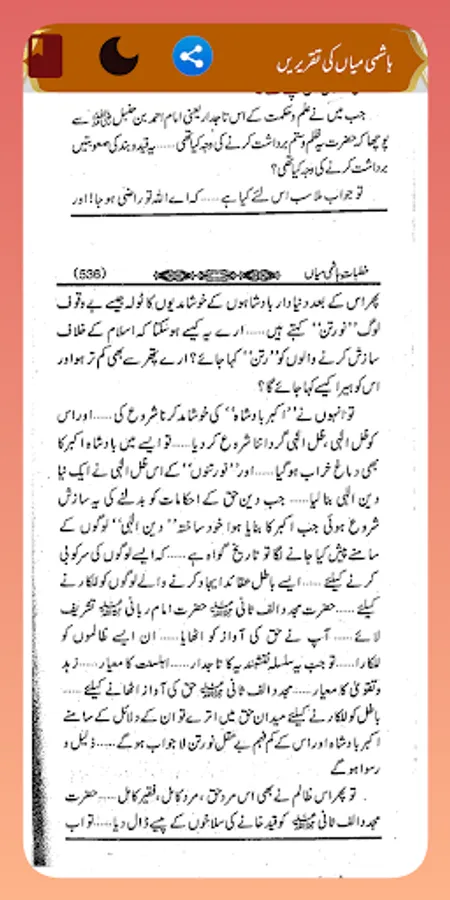 ہاشمی میاں کی تقریریں
جب میں نے علم و حکمت کے اس تاجدار یعنی امام احمد بن حنبل رضی اللہ عنہ سے
پوچھا کہ حضرت یہ ظلم و ستم برداشت کرنے کی وجہ کیا تھی ..... یہ قید و بند کی صعوبتیں
برداشت کرنے کی وجہ کیا تھی؟
تو جواب ملا سب اس لئے کیا ہے ..... کہ اے اللہ تو راضی ہو جا! اور
خطبات ہاشمی میاں (536)
پھر اس کے بعد دنیا دار بادشاہوں کے خوشامدیوں کا ٹولہ جسے بے وقوف
لوگ "نورتن" کہتے ہیں ..... ارے یہ کیسے ہو سکتا کہ اسلام کے خلاف
سازش کرنے والوں کو "رتن" کہا جائے؟ ارے پتھر سے بھی کم تر ہو اور
اس کو ہیرا کیسے کہا جائے گا؟
تو انہوں نے "اکبر بادشاہ" کی خوشامد کرنا شروع کی ..... اور اس
کو ظل الٰہی، ظل الٰہی گرداننا شروع کر دیا ..... تو ایسے میں بادشاہ اکبر کا
بھی دماغ خراب ہو گیا ..... اور "نورتنوں" کے اس ظل الٰہی نے ایک نیا
دین الٰہی بنا لیا ..... جب دین حق کے احکامات کو بدلنے کی یہ سازش
شروع ہوئی جب اکبر کا بنایا ہوا خود ساختہ "دین الٰہی" لوگوں کے
سامنے پیش کیا جانے لگا تو تاریخ گواہ ہے ..... کہ ایسے لوگوں کی سرکوبی
کرنے کیلئے ..... ایسے باطل عقائد ایجاد کرنے والے لوگوں کو للکارنے
کیلئے ..... حضرت مجدد الف ثانی حضرت امام ربانی تشریف
لائے ..... آپ نے حق کی آواز کو اٹھایا ..... ان ایسے ظالموں کو
للکارا ..... تو جب یہ سلسلہ نقشبندیہ کا تاجدار ..... اہلسنت کا معیار ..... زہد
و تقویٰ کا معیار ..... مجدد الف ثانی حق کی آواز اٹھانے کیلئے .....
باطل کو للکارنے کیلئے میدان حق میں اترے تو ان کے دلائل کے سامنے
اکبر بادشاہ اور اس کے کم فہم بے عقل نورتن لاجواب ہو گے ..... ذلیل و
رسوا ہو گے
تو پھر اس ظالم نے بھی اس مرد حق، مرد کامل، فقیر کامل ..... حضرت
مجدد الف ثانی کو قید خانے کی سلاخوں کے پیچھے ڈال دیا ..... تو اب